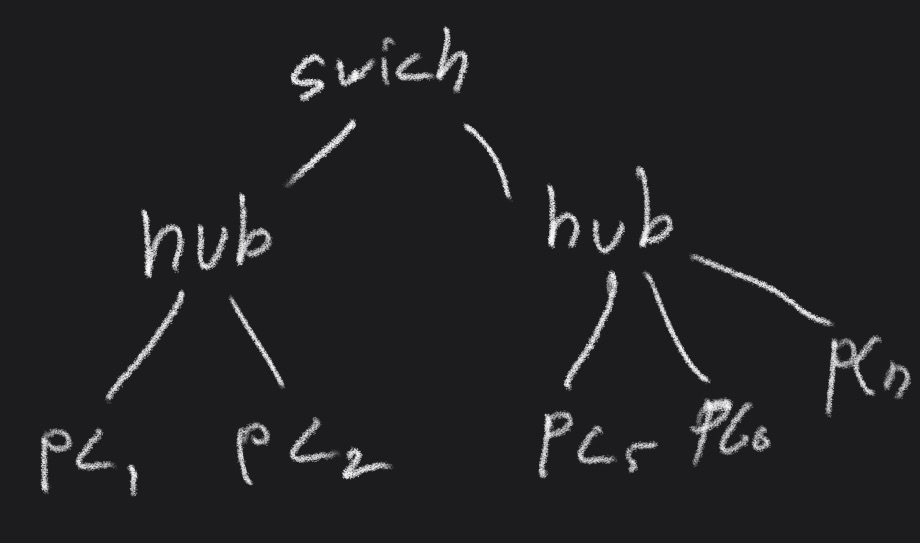 swich
hub hub
PC1 PC2 PC5 PC6 PCn